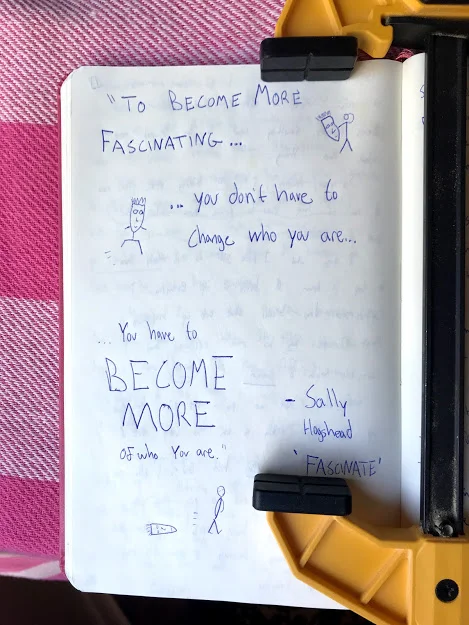 "To Become More
Fascinating...
... you don't have to
change who you are...
... You have to
BECOME
MORE
of who you are."
- Sally
Hogshead
'FASCINATE'